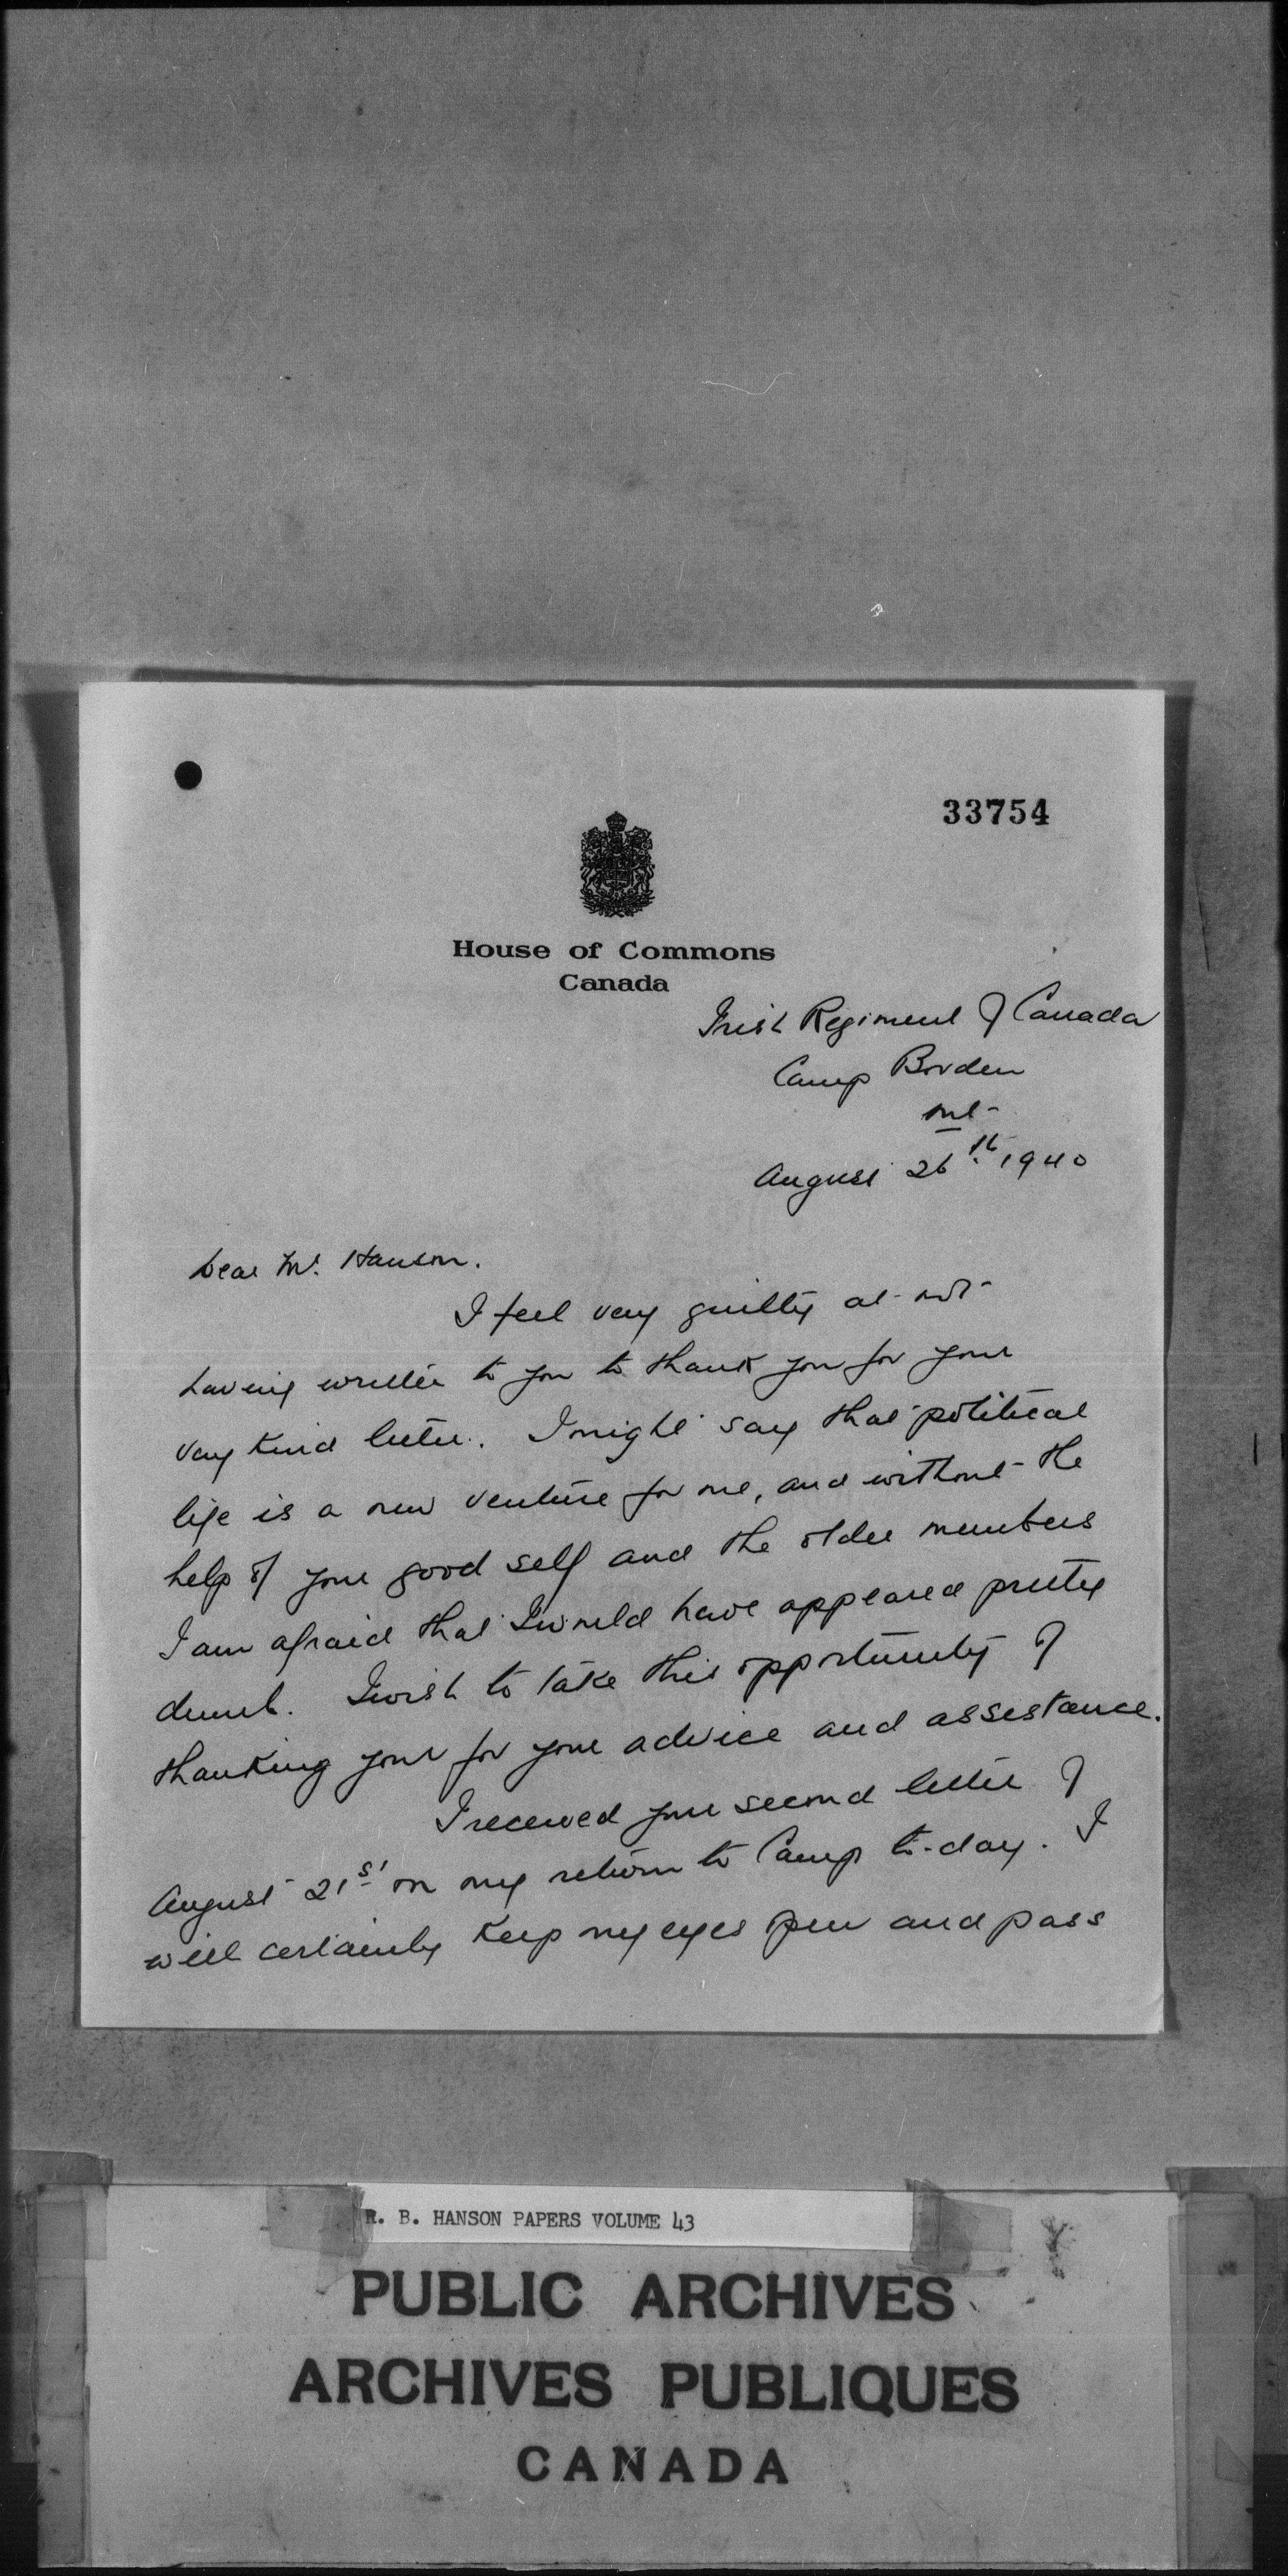 33754
House of Commons
Canada
Irish Regiment of Canada
Camp Borden
Ont-
August 26th. 1940
Dear Mr. Hanson.
I feel very guilty at not
having written to you to thank you for your
very kind letter. I might say that political
life is a new venture for me, and without the
help of your good self and the older members
I am afraid that I would have appeared pretty
dumb. I wish to take this opportunity of
thanking your for your advice and assistance.
I received your second letter of
August 21st on my return to Camp to-day. I
will certainly keep my eyes open and pass
R. B. HANSON PAPERS VOLUME 43
PUBLIC ARCHIVES
ARCHIVES PUBLIQUES
CANADA